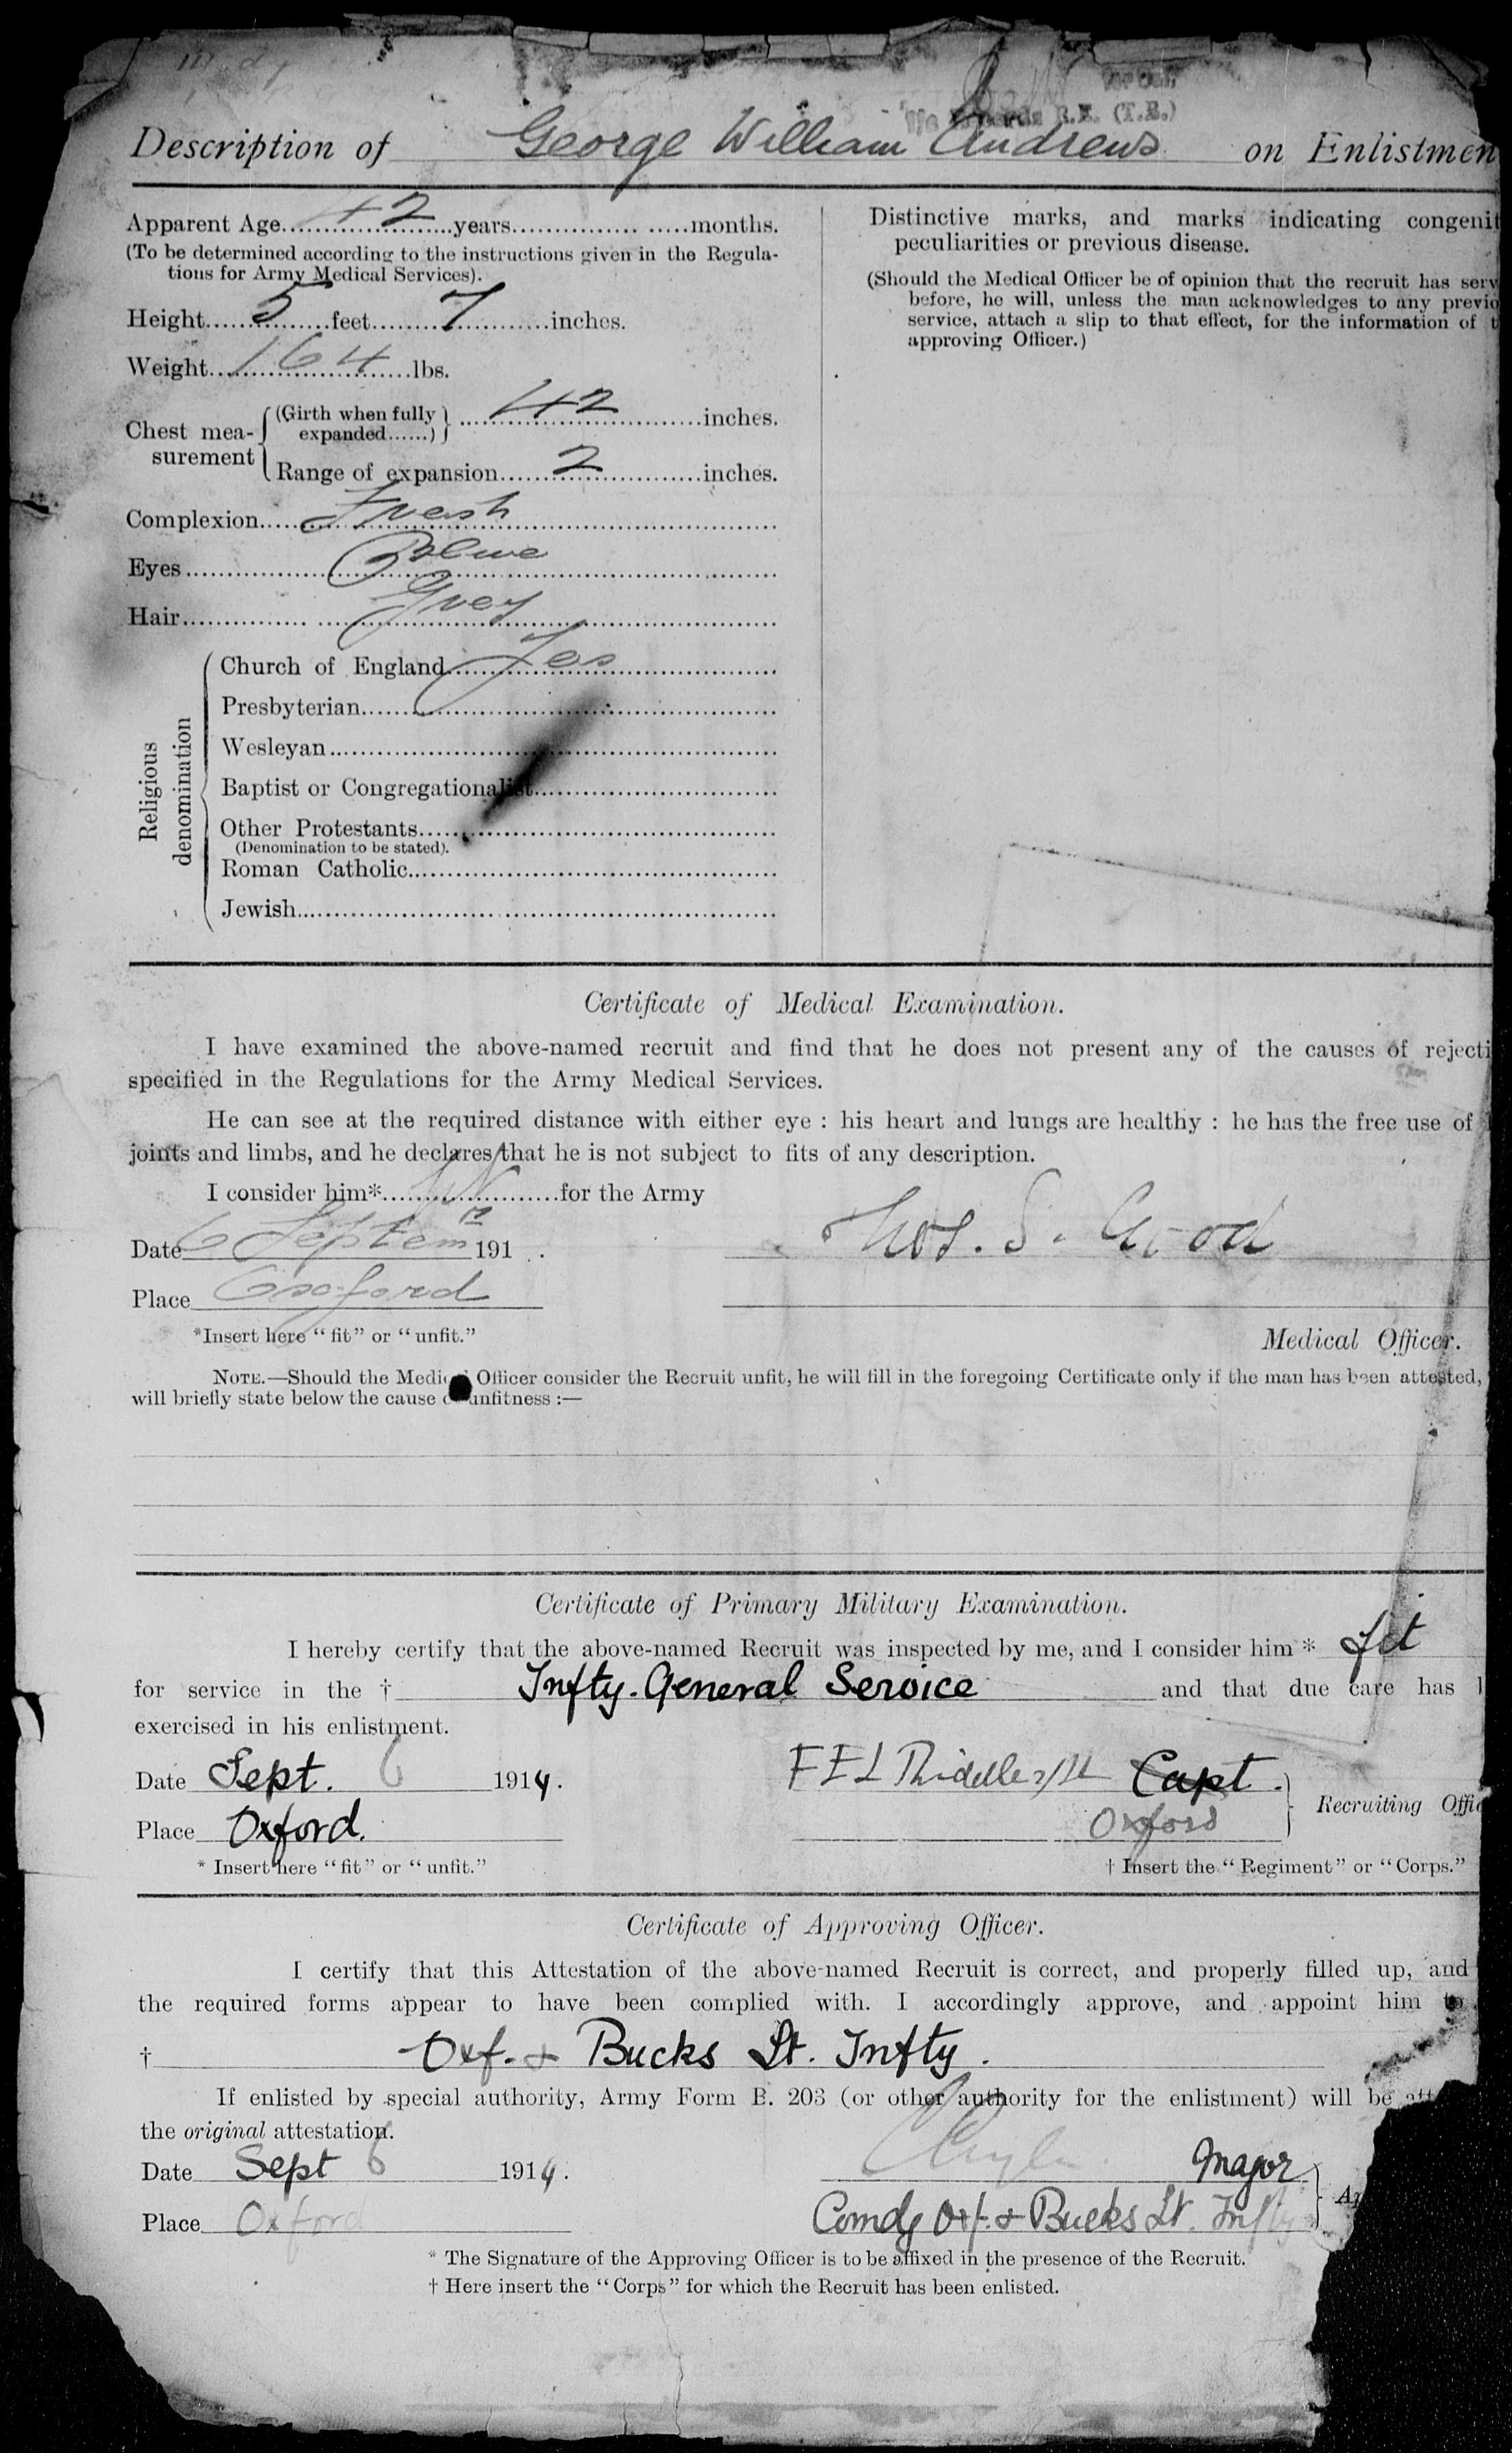 R.E. (T.F.)
Description of George William Andrews on Enlistmen
Apparent Age 42 years months.
(To be determined according to the instructions given in the Regula-
tions for Army Medical Services).
Height 5 feet 7 inches.
Weight 164 lbs.
Chest mea-surement
(Girth when fully expanded) 42 inches.
Range of expansion 2 inches.
Complexion Fresh
Eyes Blue
Hair Grey
Religious denomination
Church of England Yes
Presbyterian
Wesleyan
Baptist or Congregationalist
Other Protestants
(Denomination to be stated).
Roman Catholic
Jewish
Distinctive marks, and marks indicating congenit
peculiarities or previous disease.
(Should the Medical Officer be of opinion that the recruit has serv
before, he will, unless the man acknowledges to any previo
service, attach a slip to that effect, for the information of t
approving Officer.)
Certificate of Medical Examination.
I have examined the above-named recruit and find that he does not present any of the causes of rejecti
specified in the Regulations for the Army Medical Services.
He can see at the required distance with either eye : his heart and lungs are healthy : he has the free use of
joints and limbs, and he declares that he is not subject to fits of any description.
I consider him* for the Army
Date 6 Septem 191 .
Place Oxford
Medical Officer.
*Insert here "fit" or "unfit."
NOTE.—Should the Medical Officer consider the Recruit unfit, he will fill in the foregoing Certificate only if the man has been attested,
will briefly state below the cause of unfitness :—
Certificate of Primary Military Examination.
I hereby certify that the above-named Recruit was inspected by me, and I consider him * fit
for service in the † Infty. General Service and that due care has
exercised in his enlistment.
Date Sept. 6 1914.
Capt.
Place Oxford.
Oxford
Recruiting Offic
* Insert here "fit" or "unfit."
† Insert the "Regiment" or "Corps."
Certificate of Approving Officer.
I certify that this Attestation of the above-named Recruit is correct, and properly filled up, and
the required forms appear to have been complied with. I accordingly approve, and appoint him to
† Oxf. & Bucks Lt. Infty.
If enlisted by special authority, Army Form B. 203 (or other authority for the enlistment) will be att
the original attestation.
Date Sept 6 1914.
Major
Place Oxford
Comdg Oxf. & Bucks Lt. Infty
* The Signature of the Approving Officer is to be affixed in the presence of the Recruit.
† Here insert the "Corps" for which the Recruit has been enlisted.